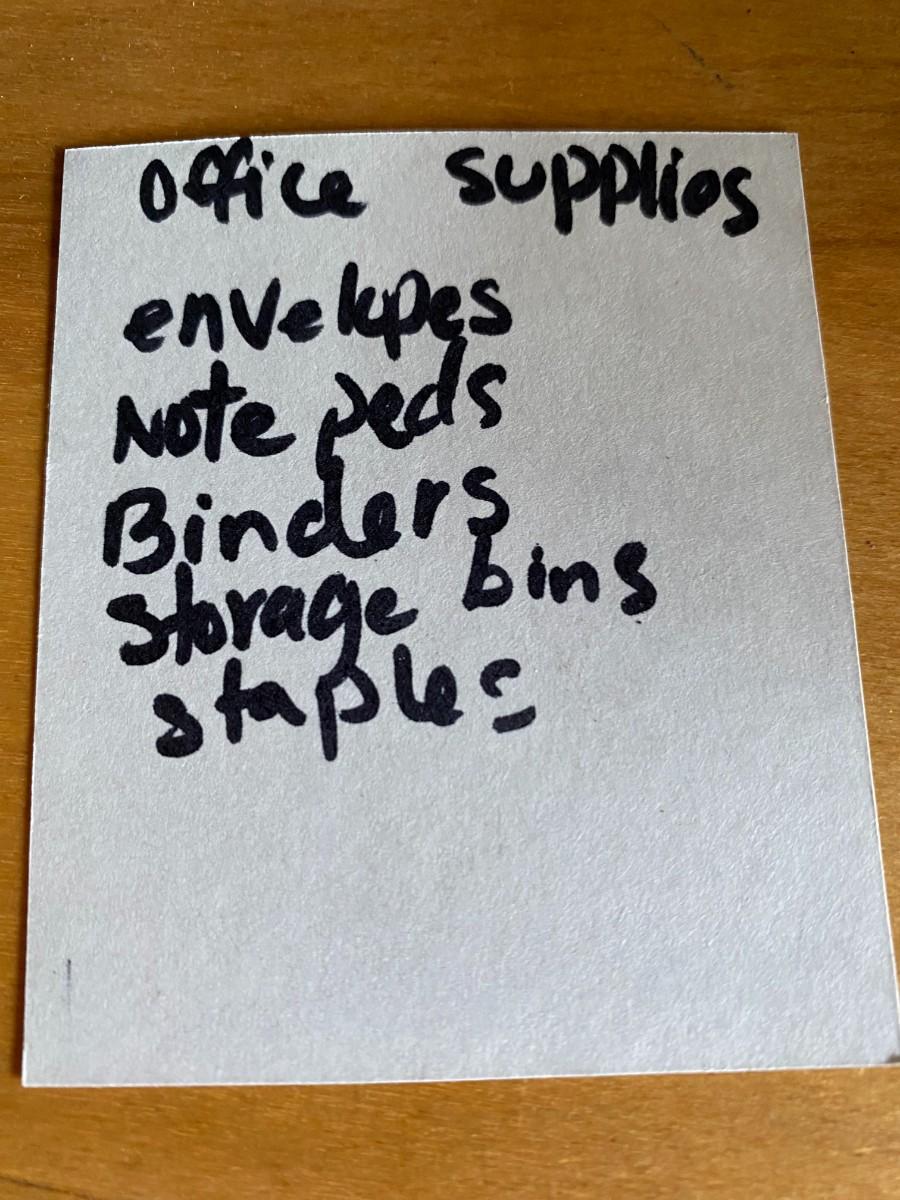 Office supplies
envelopes
Note pads
Binders
storage bins
staples